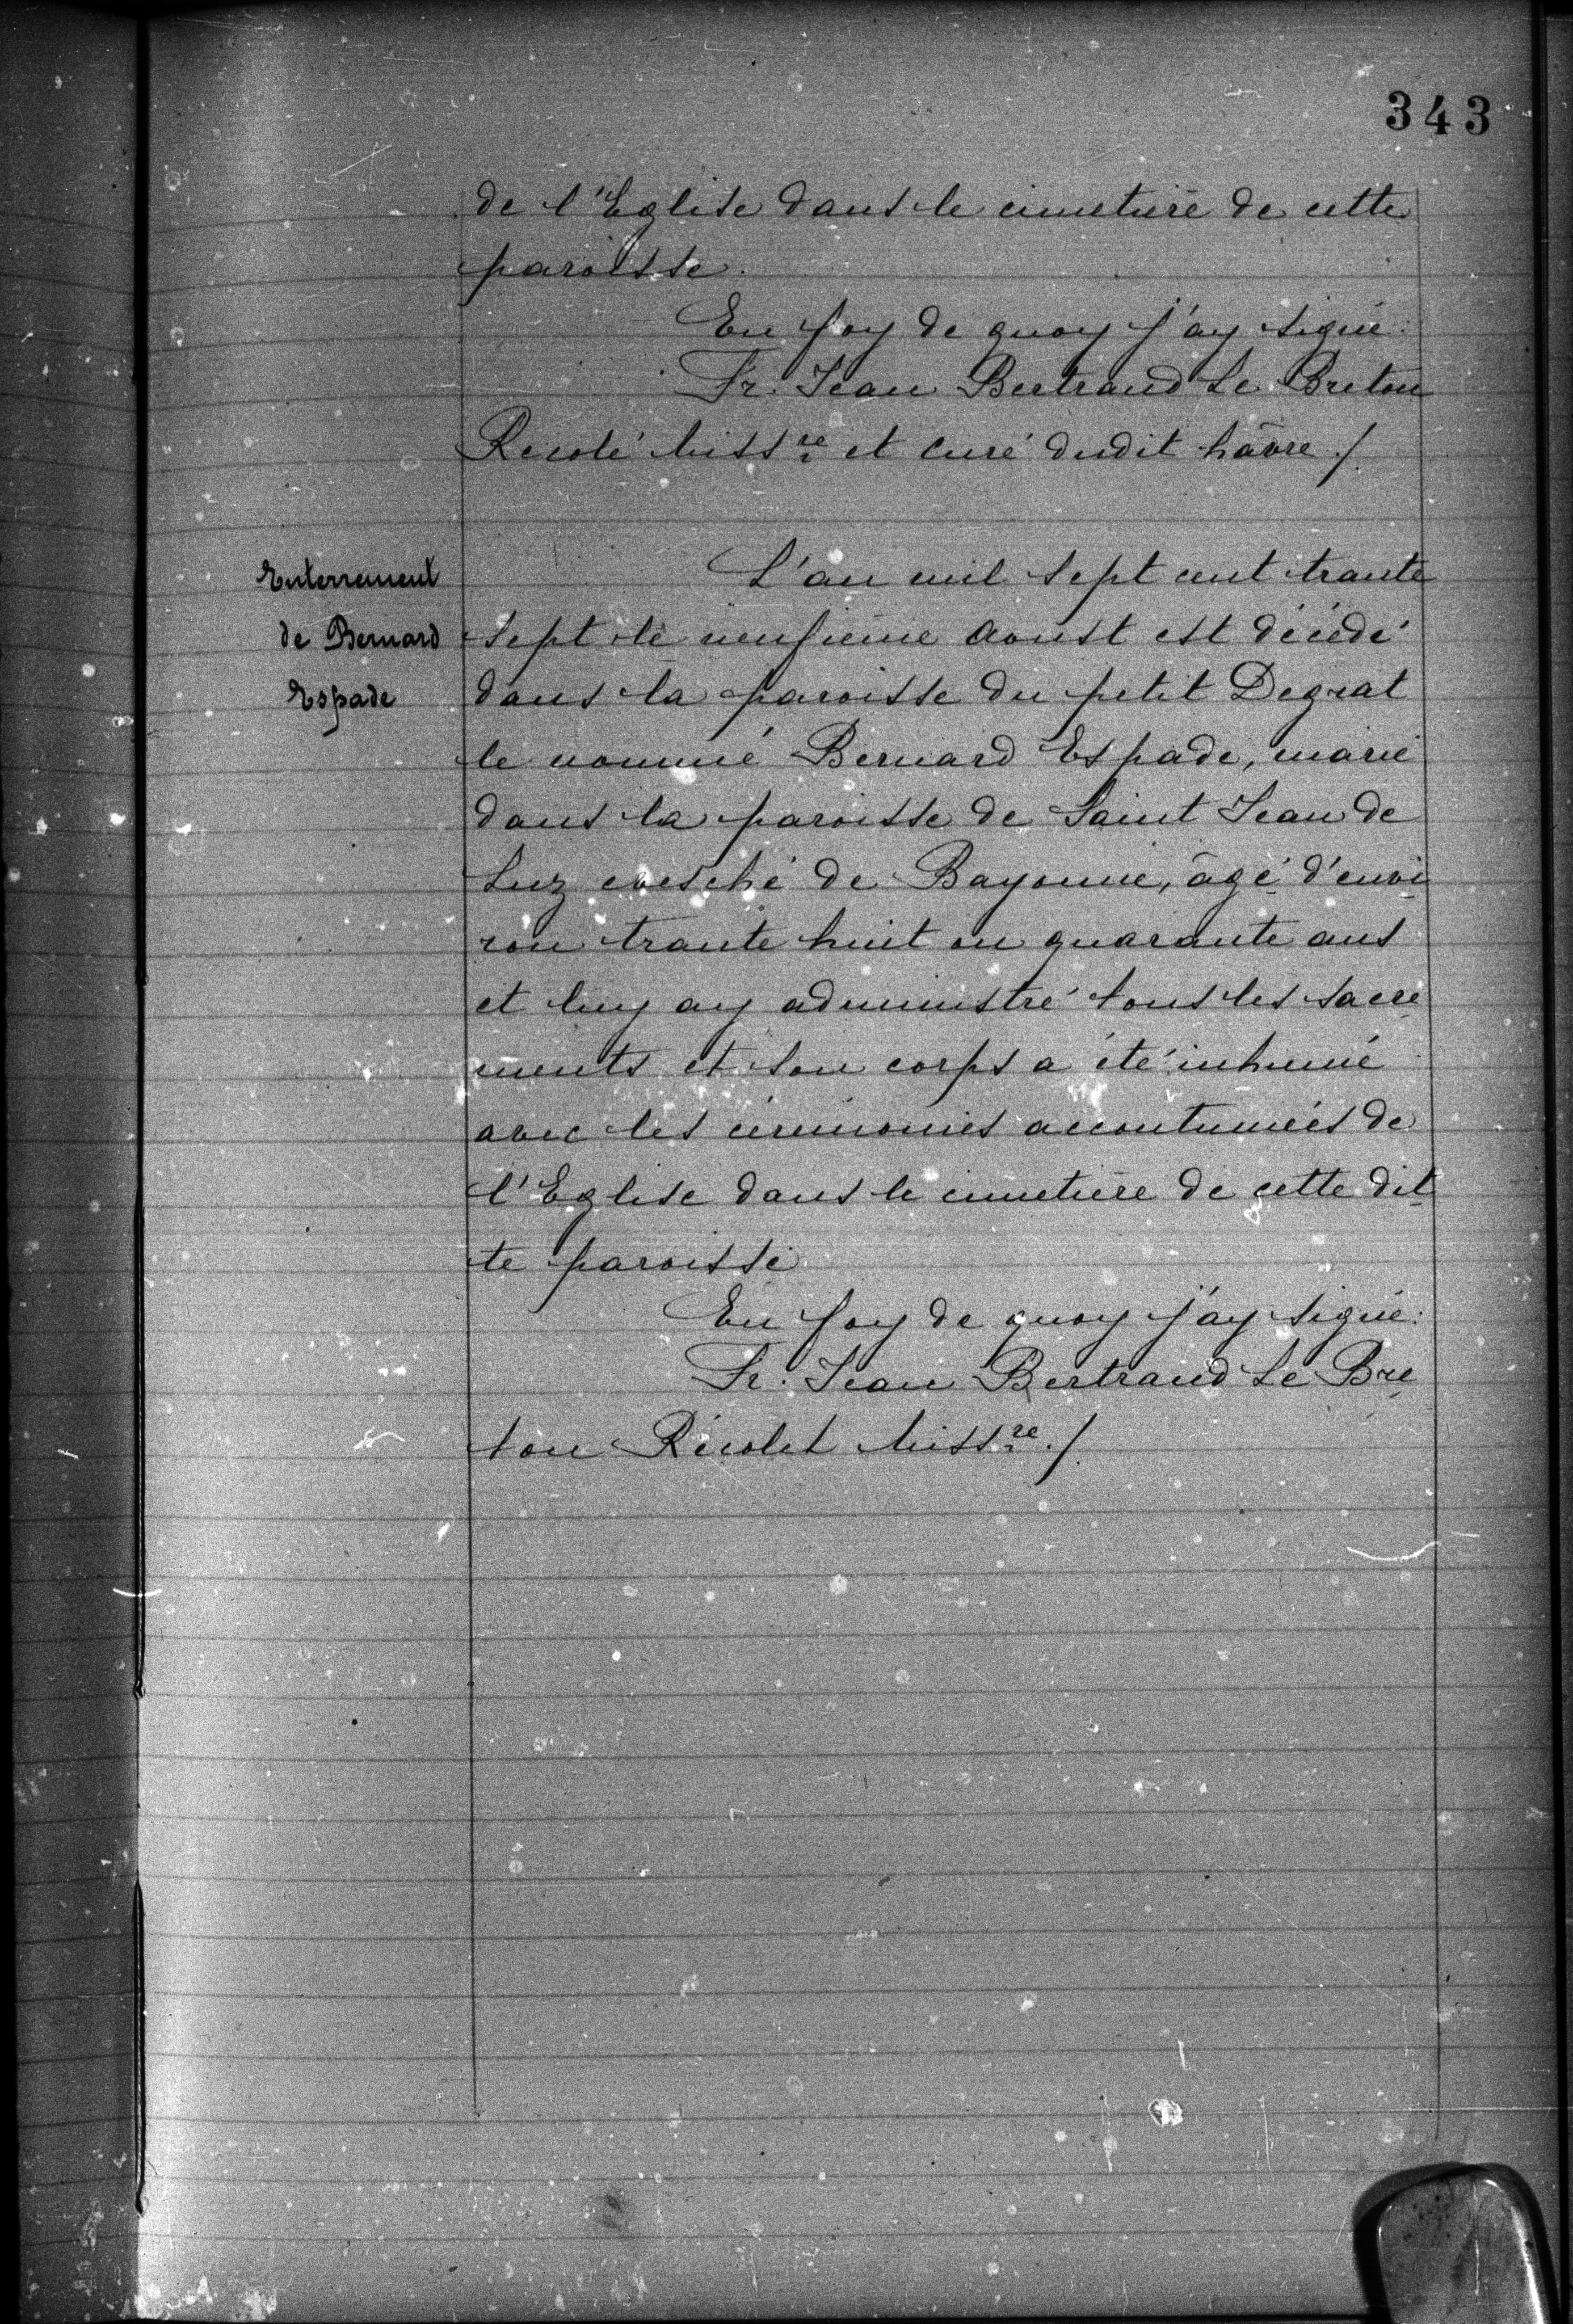 343
de l'Eglise dans le cimetière de cette
paroisse.
En foy de quoy j'ay signé:
Fr. Jean Bertrand Le Breton
Recolé Miss.re et curé dudit hâvre ./.
Enterrement
de Bernard
Espade
L'an mil sept cent trante
sept le neufième Aoust est décédé
dans la paroisse du petit Degrat
le nommé Bernard Espade, marié
dans la paroisse de Saint Jean de
Luz evesché de Bayonne, âgé d'envi
ron trante huit ou quarante ans
et luy ay administré tous les sacre
ments et son corps a été inhumé
avec les cérémonies accoutumées de
l'Eglise dans le cimetière de cette dit
te paroisse
En foy de quoy j'ay signé:
Fr. Jean Bertrand Le Bre
ton Récolet Miss.re ./.